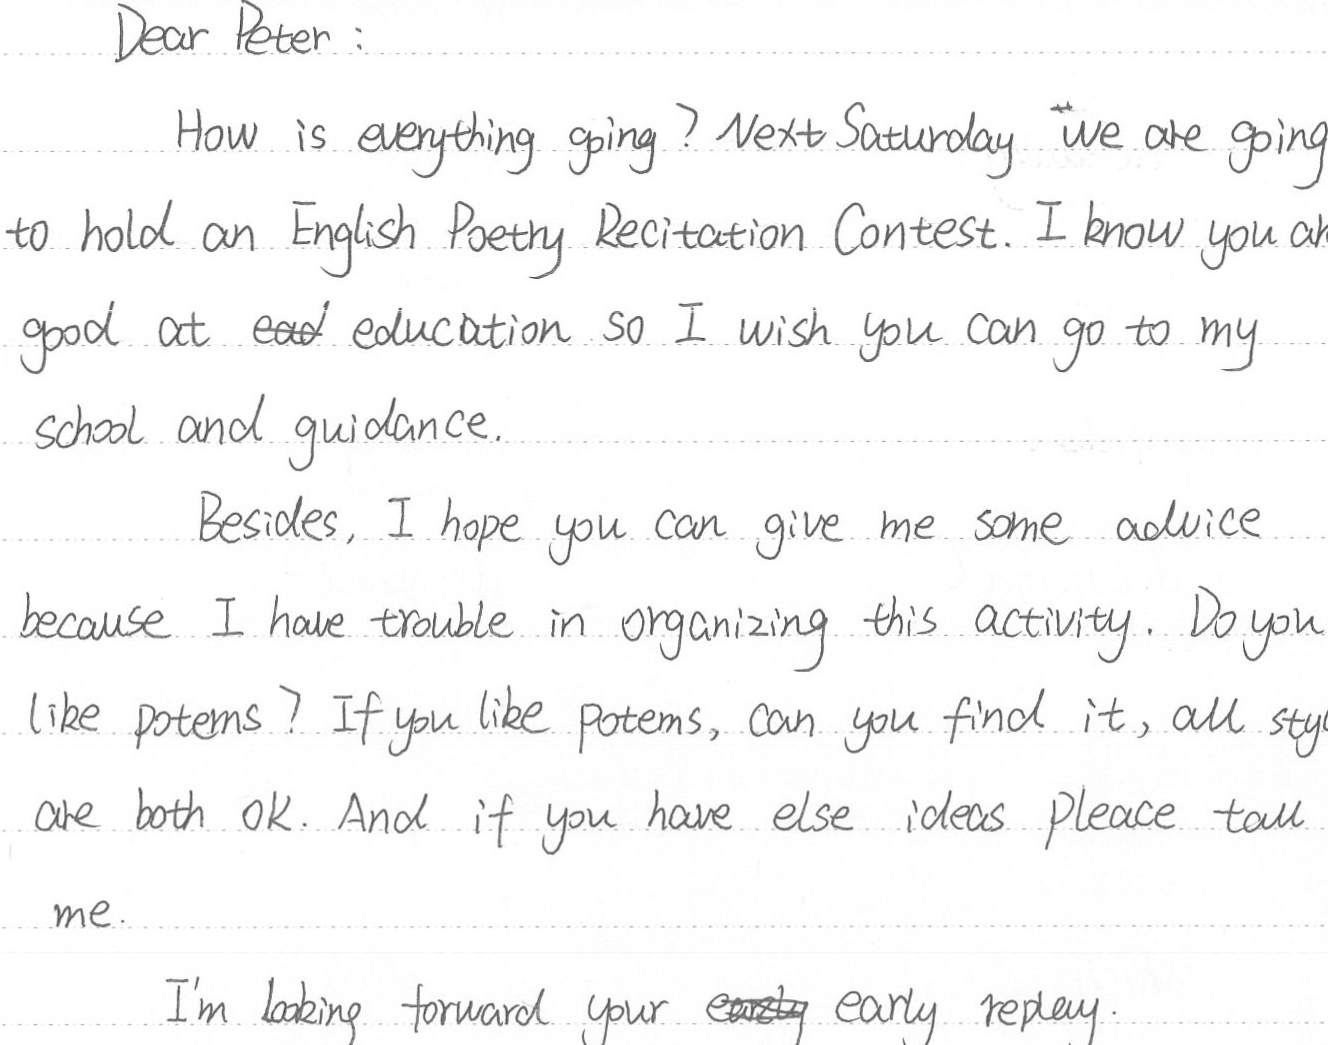 Dear Peter :
How is everything going? Next Saturday we are going
to hold an English Poetry Recitation Contest. I know you ar
good at education so I wish you can go to my
school and guidance.
Besides, I hope you can give me some advice
because I have trouble in organizing this activity. Do you
like potems? If you like potems, can you find it, all sty
are both ok. And if you have else ideas pleace tall
me.
I'm looking forward your early replay.